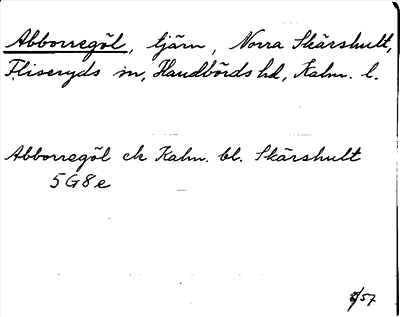 Abborregöl, tjärn, Norra Skärshult,
Fliseryds sn, Handbörds hd, Kalm. l.
Abborregöl ek Kalm. bl. Skärshult
5G8e
/57